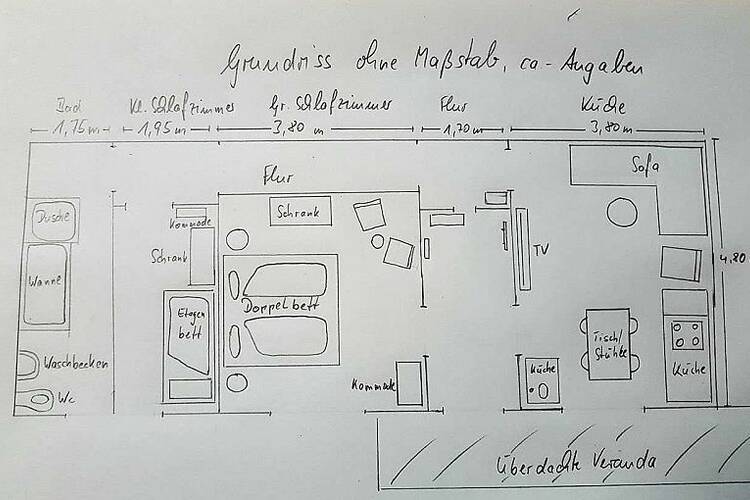 Grundriss ohne Maßstab, ca-Angaben
Bad Kl. Schlafzimmer Gr. Schlafzimmer Flur Küche
1,75m 1,95m 3,80 m 1,20m 3,80m
Flur
Sofa
Dusche
Kommode
Schrank
Schrank
TV
4,80
Wanne
Etagen
bett
Doppelbett
Tisch/
Stühle
Waschbecken
Kommode
Küche
Küche
Wc
Überdachte Veranda